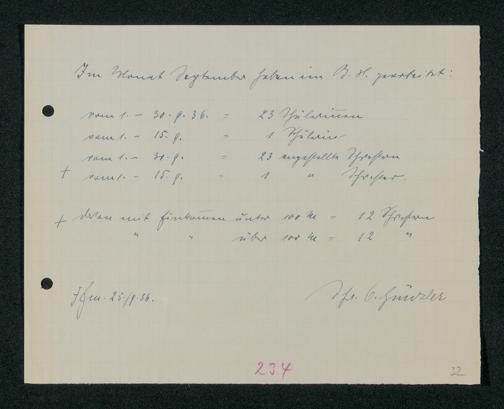 Im Monat September haben im B. H. gearbeitet:
vom 1. – 30. 9. 36. = 23 Schülerinnen
vom 1. – 15. 9. = 1 Schülerin
vom 1. – 30. 9. = 23 angestellte Schwestern
+ vom 1. – 15. 9. = 1 " Schwester.
+ davon mit Einkommen unter 100 M = 12 Schwestern
" " über 100 M = 12 "
25. 9. 36.
234
32